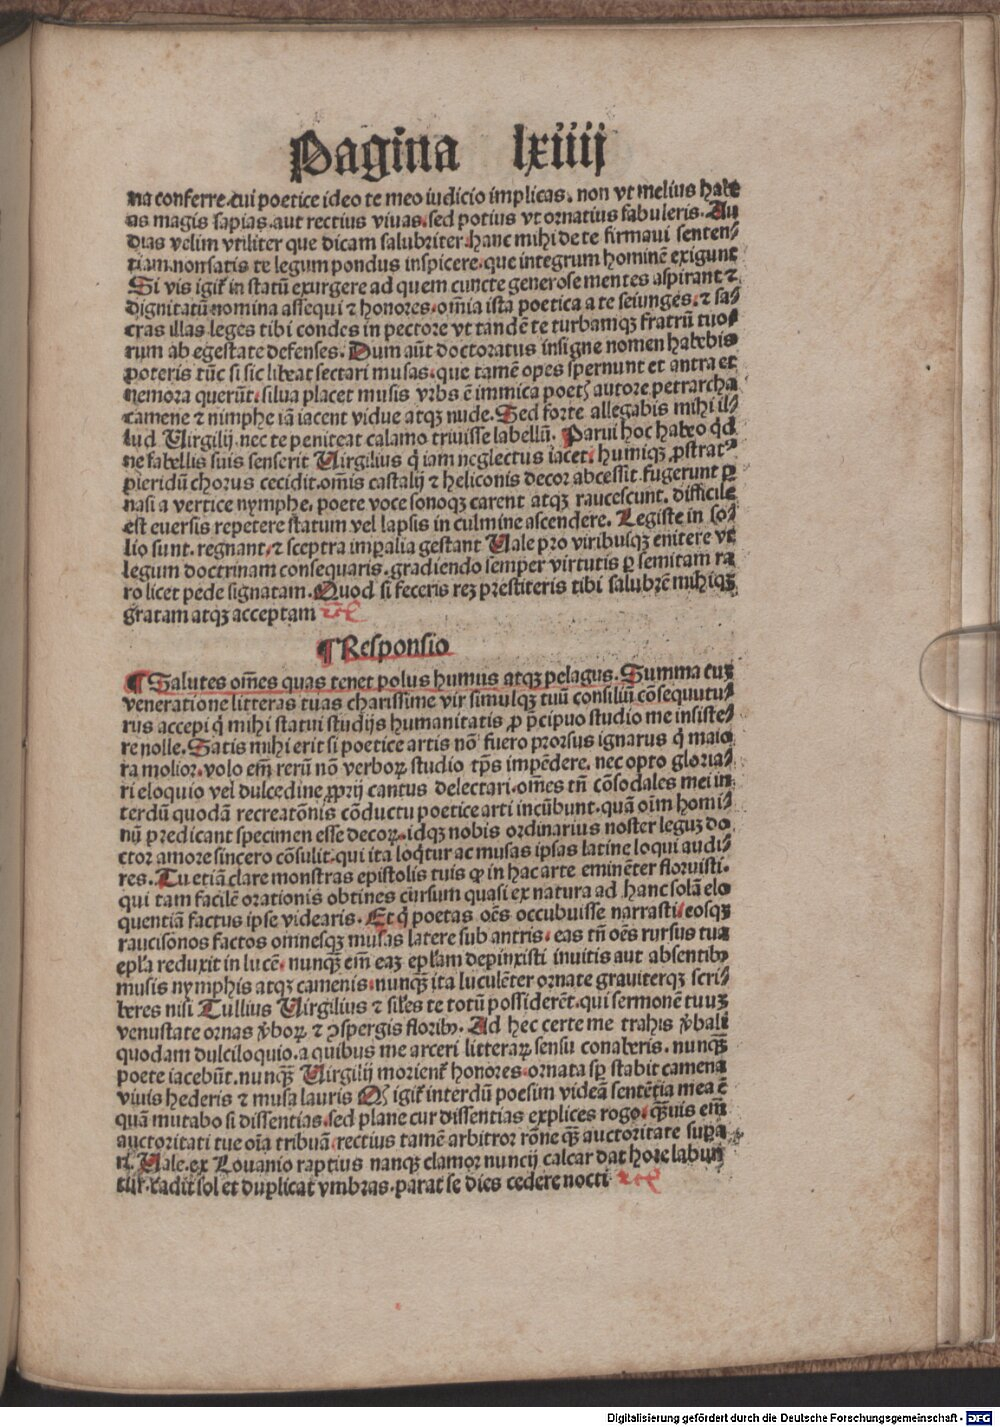 Pagina lxiiij
na conferre. cui poetice ideo te meo iudicio implicas. non vt melius habe
as magis sapias. aut rectius viuas. sed potius vt ornatius fabuleris. Au
dias velim vtiliter que dicam salubriter. hanc mihi de te firmaui senten⸗
tiam. non satis te legum pondus inspicere. que integrum hominē exigunt
Si vis igit᷑ in statū exurgere ad quem cuncte generose mentes aspirant ⁊
dignitatū nomina assequi ⁊ honores. om̄ia ista poetica a te seiunges. ⁊ sa⸗
cras illas leges tibi condes in pectore vt tandē te turbamqꝫ fratrū tuo⸗
rum ab egestate defenses. Dum aūt doctoratus insigne nomen habebis
poteris tūc si sic libeat sectari musas. que tamē opes spernunt et antra et
nemora querūt. silua placet musis vrbs ē inimica poetꝭ autore petrarcha
camene ⁊ nimphe iā iacent vidue atqꝫ nude. Sed forte allegabis mihi il⸗
lud Virgilij. nec te peniteat calamo triuisse labellū. Parui hoc habeo qd̄
ne fabellis suis senserit Virgilius q̄ iam neglectus iacet. humiqꝫ ꝓstrat⸗
pieridū chorus cecidit. om̄is castalij ⁊ heliconis decor abcessit. fugerunt ꝑ
nasi a vertice nymphe. poete voce sonoqꝫ carent atqꝫ raucescunt. difficile
est euersis repetere statum vel lapsis in culmine ascendere. Legiste in so⸗
lio sunt. regnant. ⁊ sceptra imꝑalia gestant Vale pro viribusqꝫ enitere vt
legum doctrinam consequaris. gradiendo semper virtutis ꝑ semitam ra
ro licet pede signatam. Quod si feceris reꝫ prestiteris tibi salubrē mihiqꝫ
gratam atqꝫ acceptam
¶ Responsio
¶ Salutes om̄es quas tenet polus humus atqꝫ pelagus. Summa cuꝫ
veneratione litteras tuas charissime vir simulqꝫ tuū consiliū cōsequutu⸗
rus accepi q̄ mihi statui studijs humanitatis ꝓ p̄cipuo studio me insiste⸗
re nolle. Satis mihi erit si poetice artis nō fuero prorsus ignarus q̄ maio
ra molior. volo em̄ rerū nō verboꝝ studio tp̄s impēdere. nec opto gloria⸗
ri eloquio vel dulcedine ꝓprij cantus delectari. om̄es tn̄ cōsodales mei in⸗
terdū quodā recreatōnis cōductu poetice arti incūbunt. quā oīm homi⸗
nū predicant specimen esse decoꝝ. idqꝫ nobis ordinarius noster leguꝫ do
ctor amore sincero cōsulit. qui ita loq̄tur ac musas ipsas latine loqui audi⸗
res. Tu etiā clare monstras epistolis tuis ꝙ in hac arte eminēter floruisti.
qui tam facilē orationis obtines cursum quasi ex natura ad hanc solā elo
quentiā factus ipse videaris. Et q̄ poetas oēs occubuisse narrasti. eosqꝫ
raucisonos factos omnesqꝫ musas latere sub antris. eas tn̄ oēs rursus tua
ep̄la reduxit in lucē. nunqꝫ em̄ eaꝫ ep̄lam depinxisti inuitis aut absentibꝰ
musis nymphis atqꝫ camenis. nunqꝫ ita luculēter ornate grauiterqꝫ scri⸗
beres nisi Tullius Virgilius ⁊ sil̄es te totū possiderēt. qui sermonē tuuꝫ
venustate ornas v̄boꝝ ⁊ ꝯspergis floribꝰ. Ad hec certe me trahis v̄bali
quodam dulciloquio. a quibus me arceri litteraꝝ sensu conaberis. nunqꝫ̄
poete iacebūt. nunqꝫ̄ Virgilij morient᷑ honores. ornata sꝑ stabit camena
viuis hederis ⁊ musa lauris igit᷑ interdū poesim videā sentētia mea ē
quā mutabo si dissentias. sed plane cur dissentias explices rogo. qꝫ̄uis em̄
auctoritati tue oīa tribuā. rectius tamē arbitror rōne qꝫ̄ auctoritate supa
ri. Vale. ex Louanio raptius nanqꝫ clamor nuncij calcar dat hore labun
tur. cadit sol et duplicat vmbras. parat se dies cedere nocti
Digitalisierung gefördert durch die Deutsche Forschungsgemeinschaft - DFG